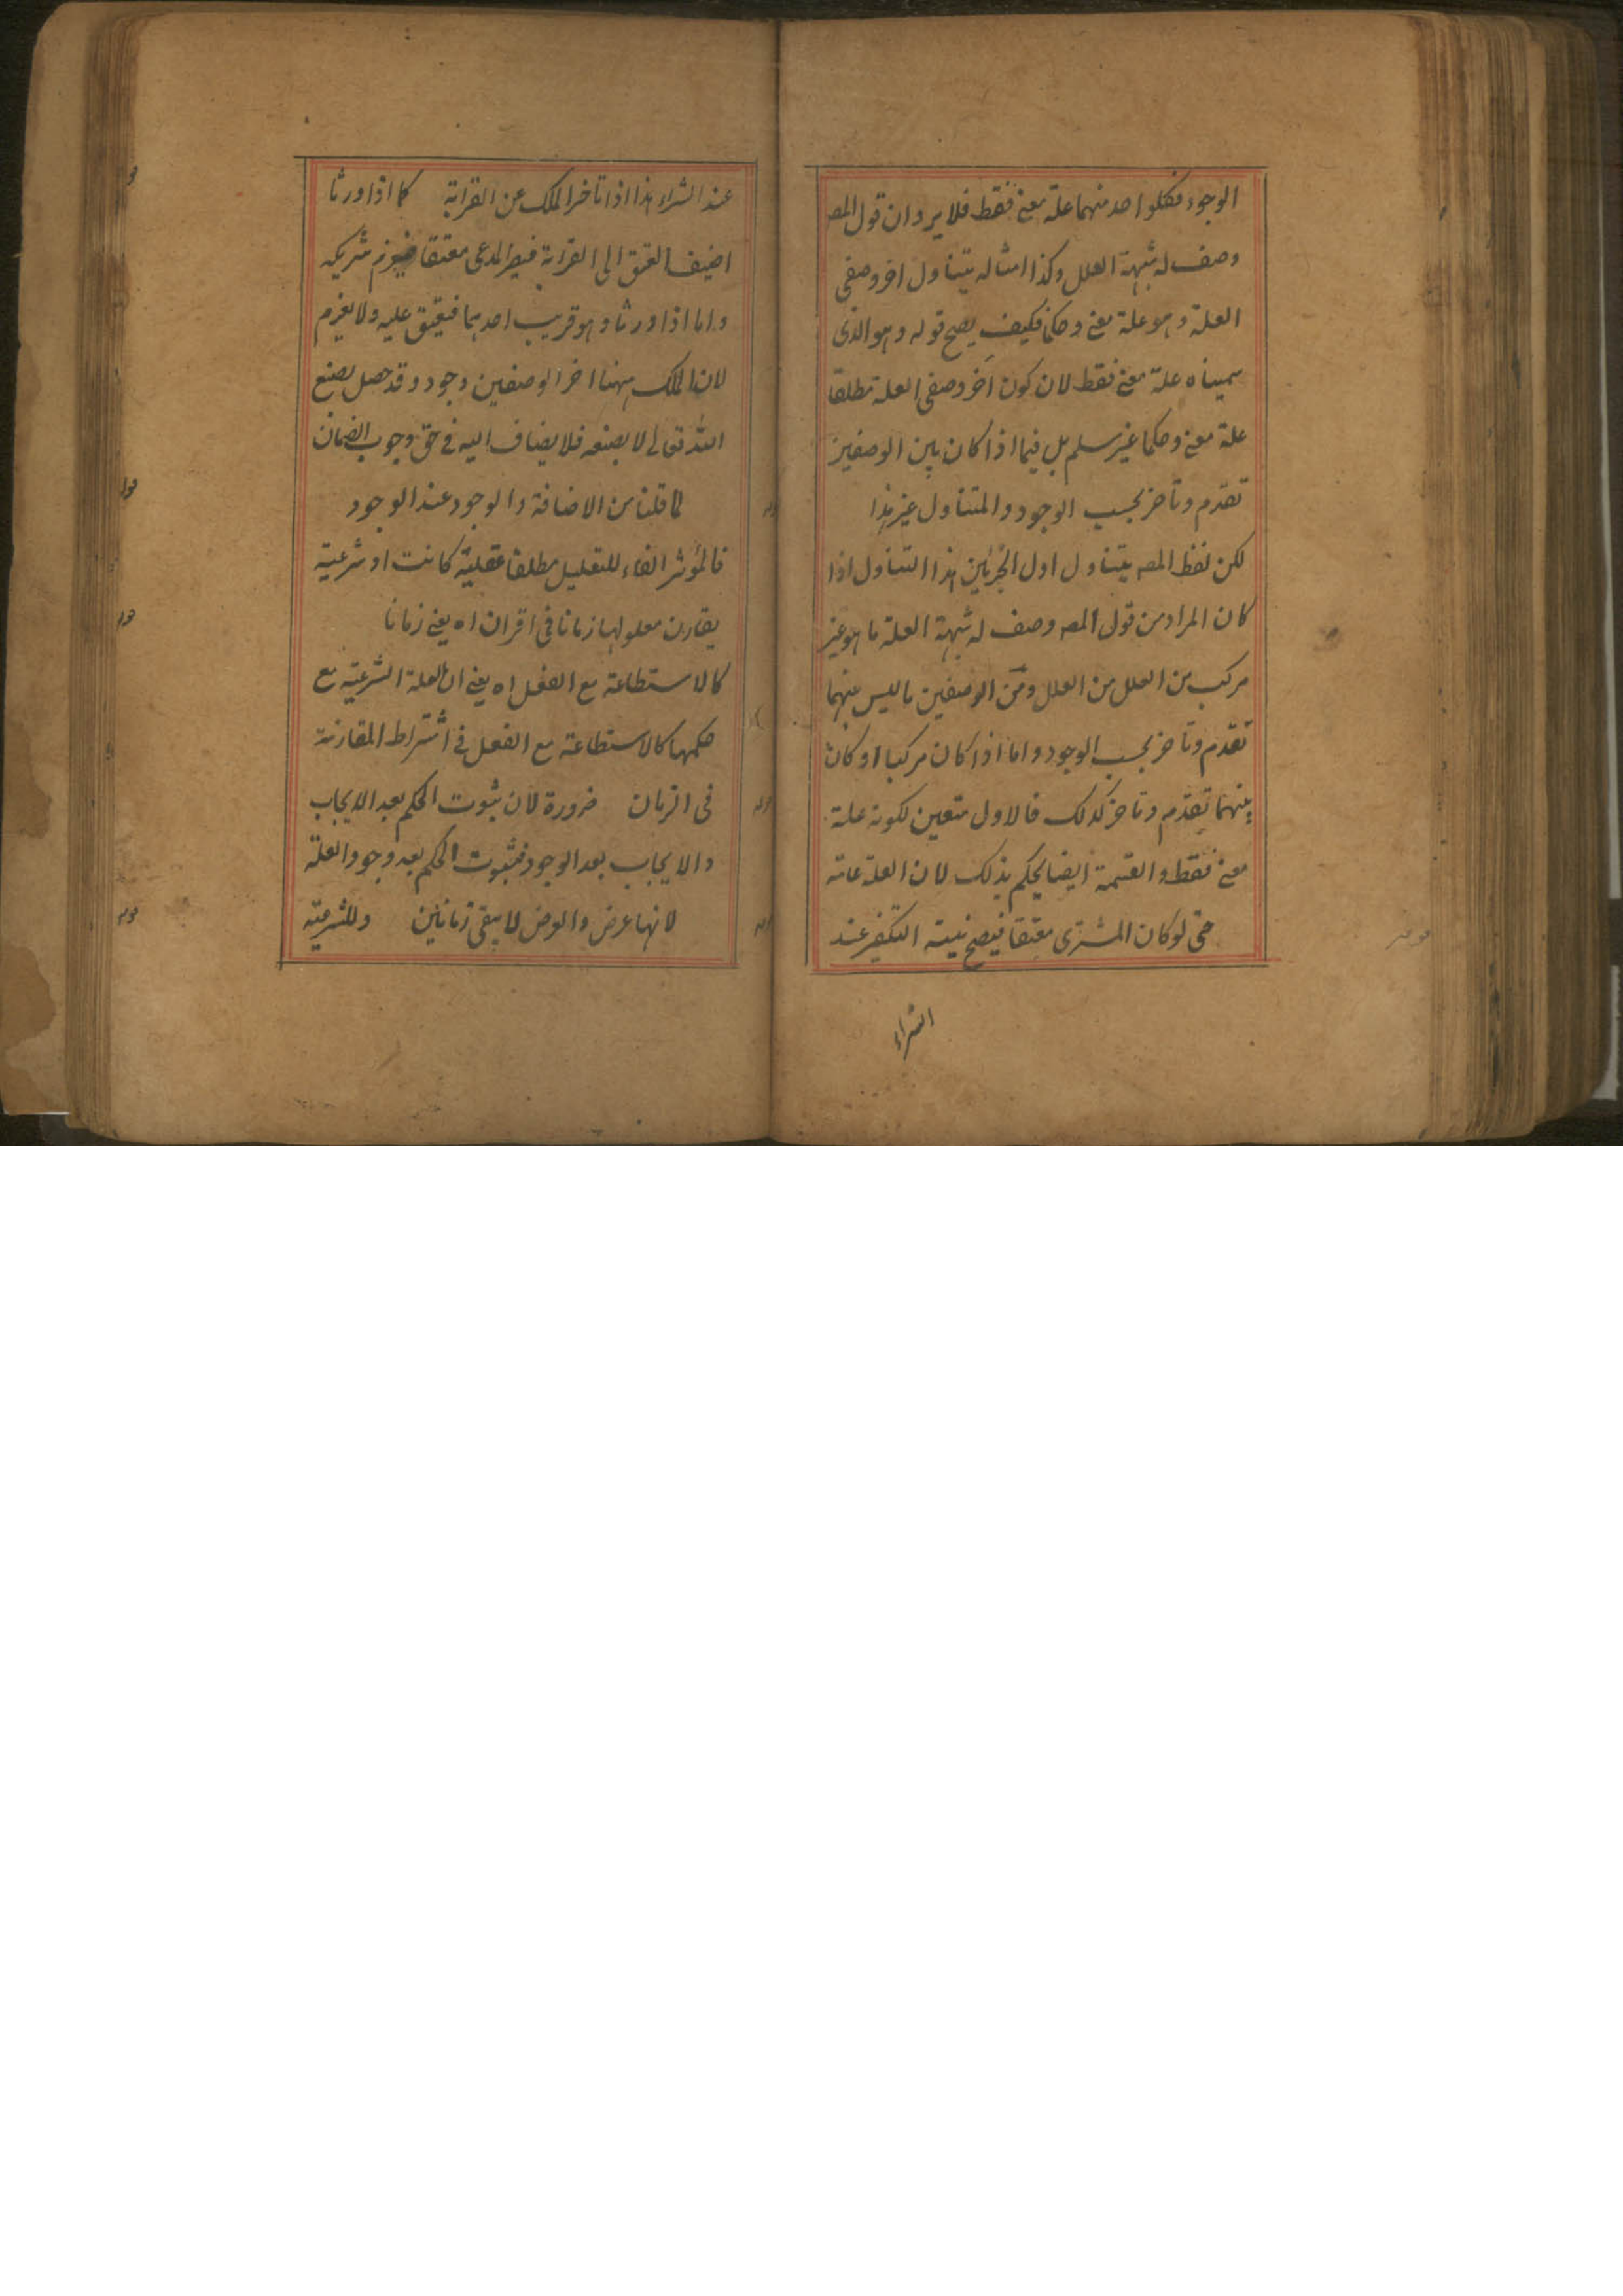 الوجوه فكلواحد منهما علة معنے فقط فلا يرد ان قول المصـ
وصف له شبهة العلل وكذا امثاله يتناول اخر وصفى
العلة وهو علة معنے وحكما فكيف يصح قوله وهو الذى
سميناه علة معنے فقط لان كون آخر وصفى العلة مطلقا
علة معنے وحكما غير مسلم بل فيما اذا كان بين الوصفين
تقدم وتاخر بحسب الوجود والمتناول غير هذا
لكن لفظ المصـ يتناول اول الجزئين هذا التناول اذا
كان المراد من قول المصـ وصف له شبهة العلة ما هو غير
مركب من العلل من العلل ومن الوصفين ما ليس بينهما
تقدم وتاخر بحسب الوجود واما اذا كان مركبا او كان
بينهما تقدم وتاخر كذلك فالاول متعين لكونه علة
معنے فقط والقسمة ايضا يحكم بذلك لان العلة عامة
حتى لو كان المشترى معتقا فيصح نية التكفير عند
الشراء
عند الشراء هذا اذا تاخر الملك عن القرابة كما اذا ورثا
اضيف العتق الى القرابة فيصر المدعى معتقا فيغرم شريكه
واما اذا ورثا وهو قريب احدهما فيعتق عليه ولا يغرم
لان الملك ههنا اخر الوصفين وجود وقد حصل بصنع
الله تعالى لا بصنعه فلا يضاف اليه فى حق وجوب الضمان
لما قلنا من الاضافة والوجود عند الوجود
فالمؤثر الفاء للتعليل مطلقا عقلية كانت او شرعية
يقارن معلولها زمانا فى اقران اه يعنے زمانا
كالاستطاعة مع الفعل اه يعنے ان العلة الشرعية مع
حكمها كالاستطاعة مع الفعل فى اشتراط المقارنة
فى الزمان ضرورة لان ثبوت الحكم بعد الايجاب
والايجاب بعد الوجود فثبوت الحكم بعد وجود العلة
لانها عرض والعرض لا يبقى زمانين وللشرعية